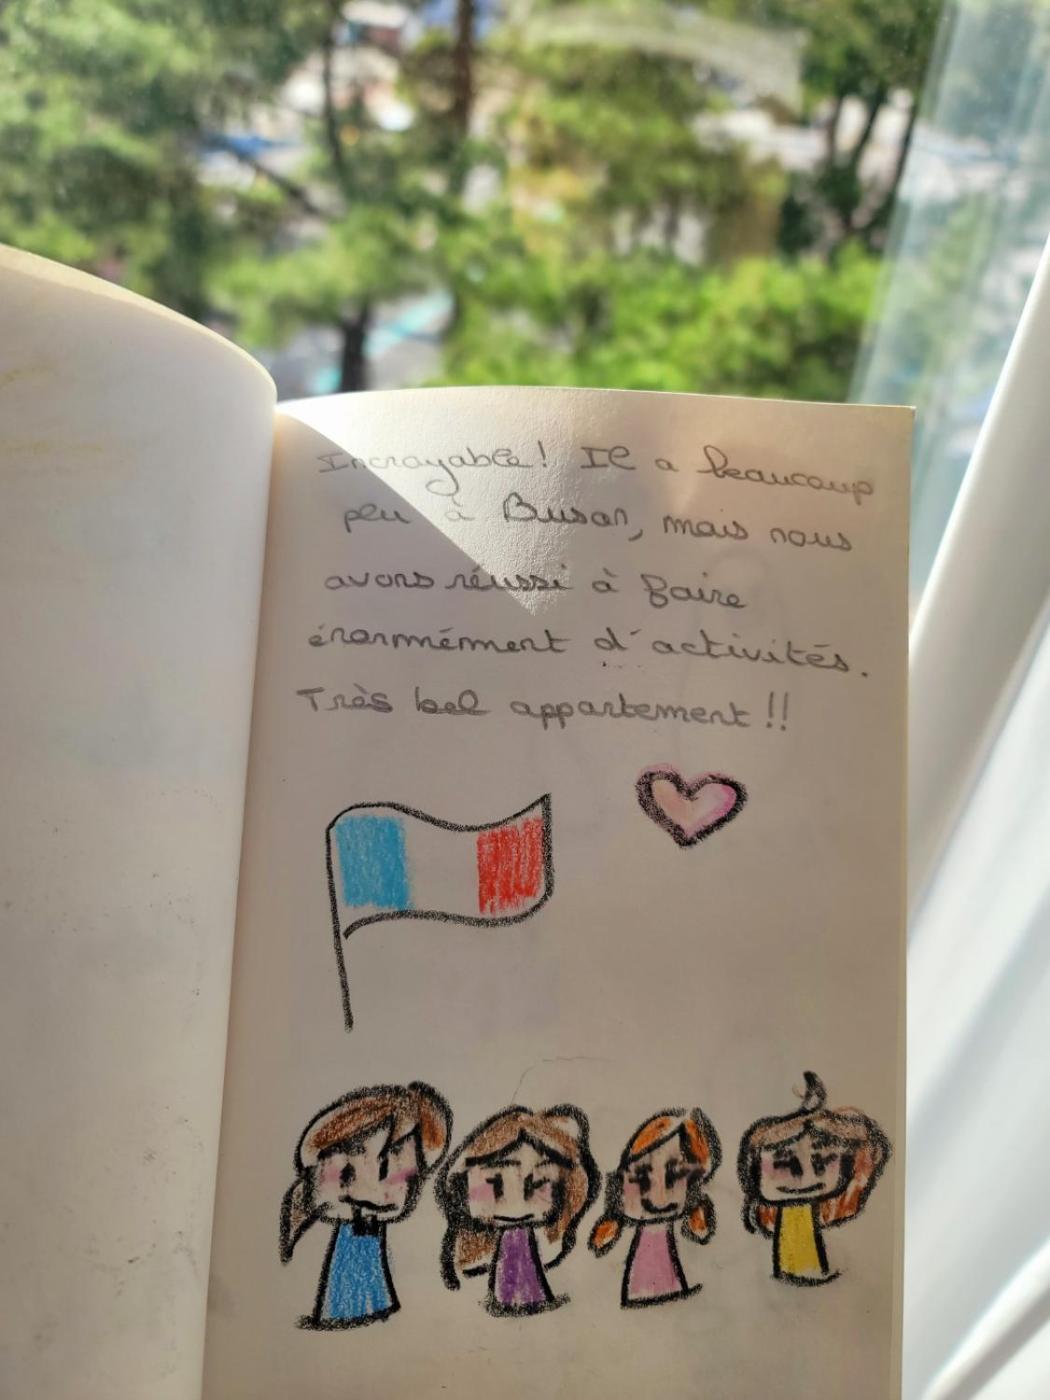 Incroyable! Il a beaucoup
plu à Busan, mais nous
avons réussi à faire
énormément d'activités.
Très bel appartement!!